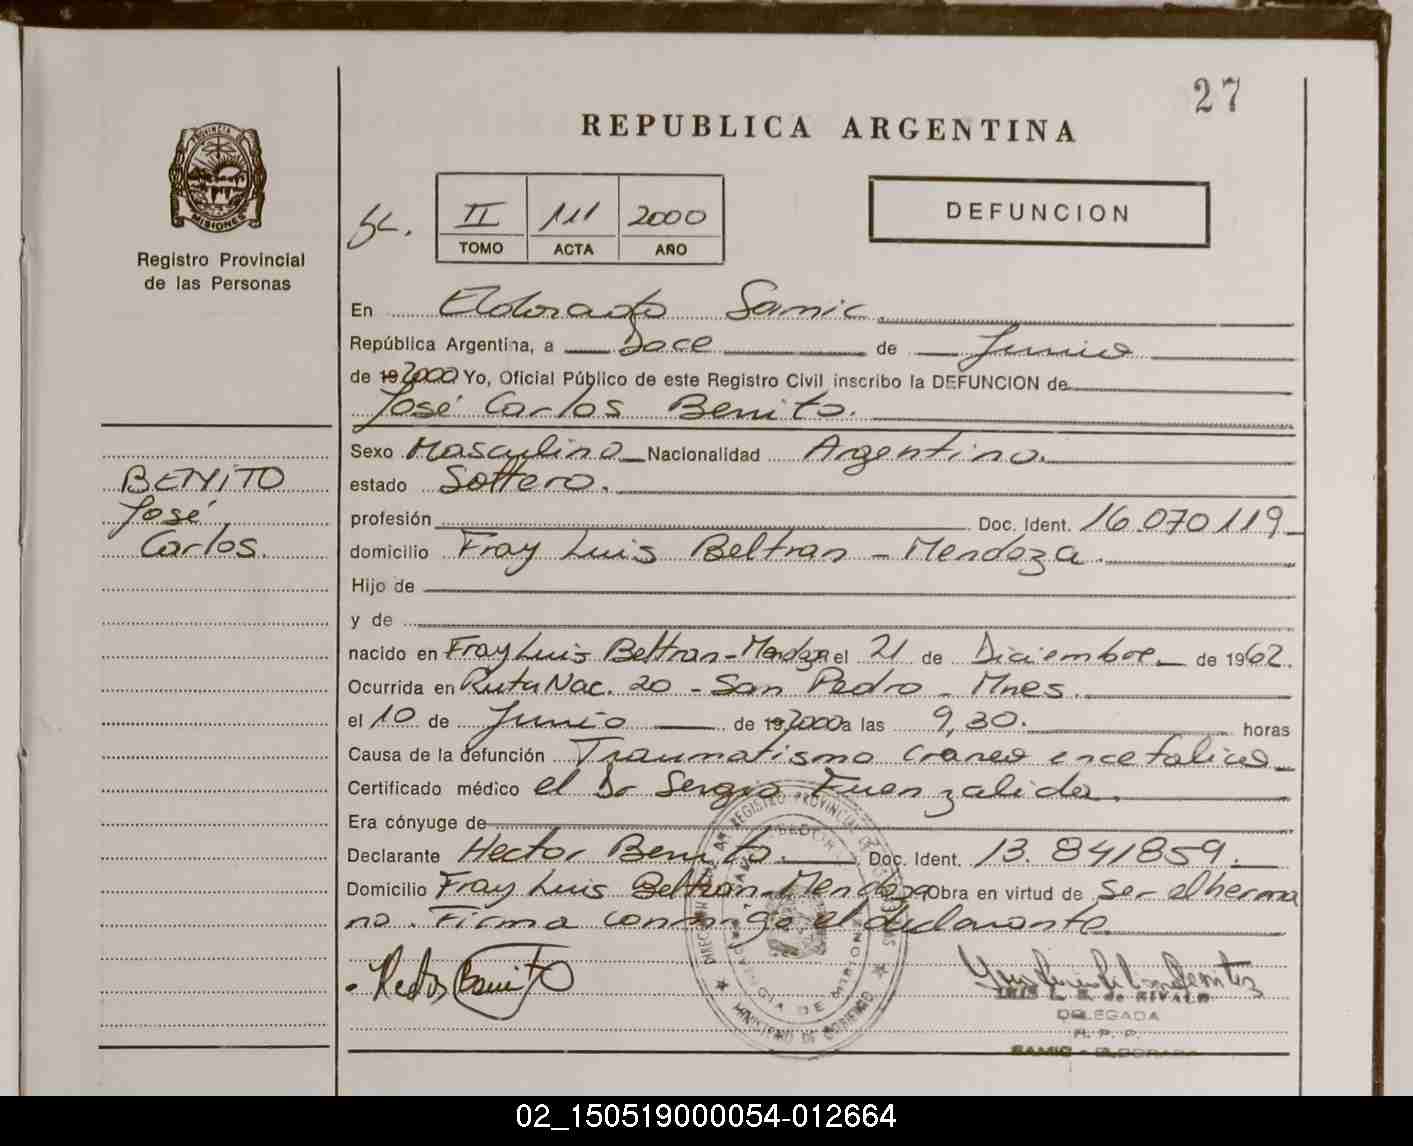 27
REPUBLICA ARGENTINA
PROVINCIA DE
MISIONES
Registro Provincial
de las Personas
II 111 2000
TOMO ACTA AÑO
DEFUNCION
En Eldorado Samic
República Argentina, a Doce de Junio
de 192000 Yo, Oficial Público de este Registro Civil inscribo la DEFUNCION de
José Carlos Benito.
Sexo Masculino Nacionalidad Argentino.
BENITO
José
Carlos.
estado Soltero.
profesión Doc. Ident. 16.070119
domicilio Fray Luis Beltran - Mendoza.
Hijo de
y de
nacido en Fray Luis Beltran - Mendoza el 21 de Diciembre de 1962.
Ocurrida en Ruta Nac. 20 - San Pedro - Mnes.
el 10 de Junio de 192000 a las 9,30. horas
Causa de la defunción Traumatismo craneo encefalico
Certificado médico el Dr Sergio Fuenzalida.
Era cónyuge de
Declarante Hector Benito. Doc. Ident. 13.841859.
Domicilio Fray Luis Beltran - Mendoza Obra en virtud de ser el herma
no. Firma conmigo el declarante.
DELEGADA
R. P. P.
SAMIC - ELDORADO
02_150519000054-012664